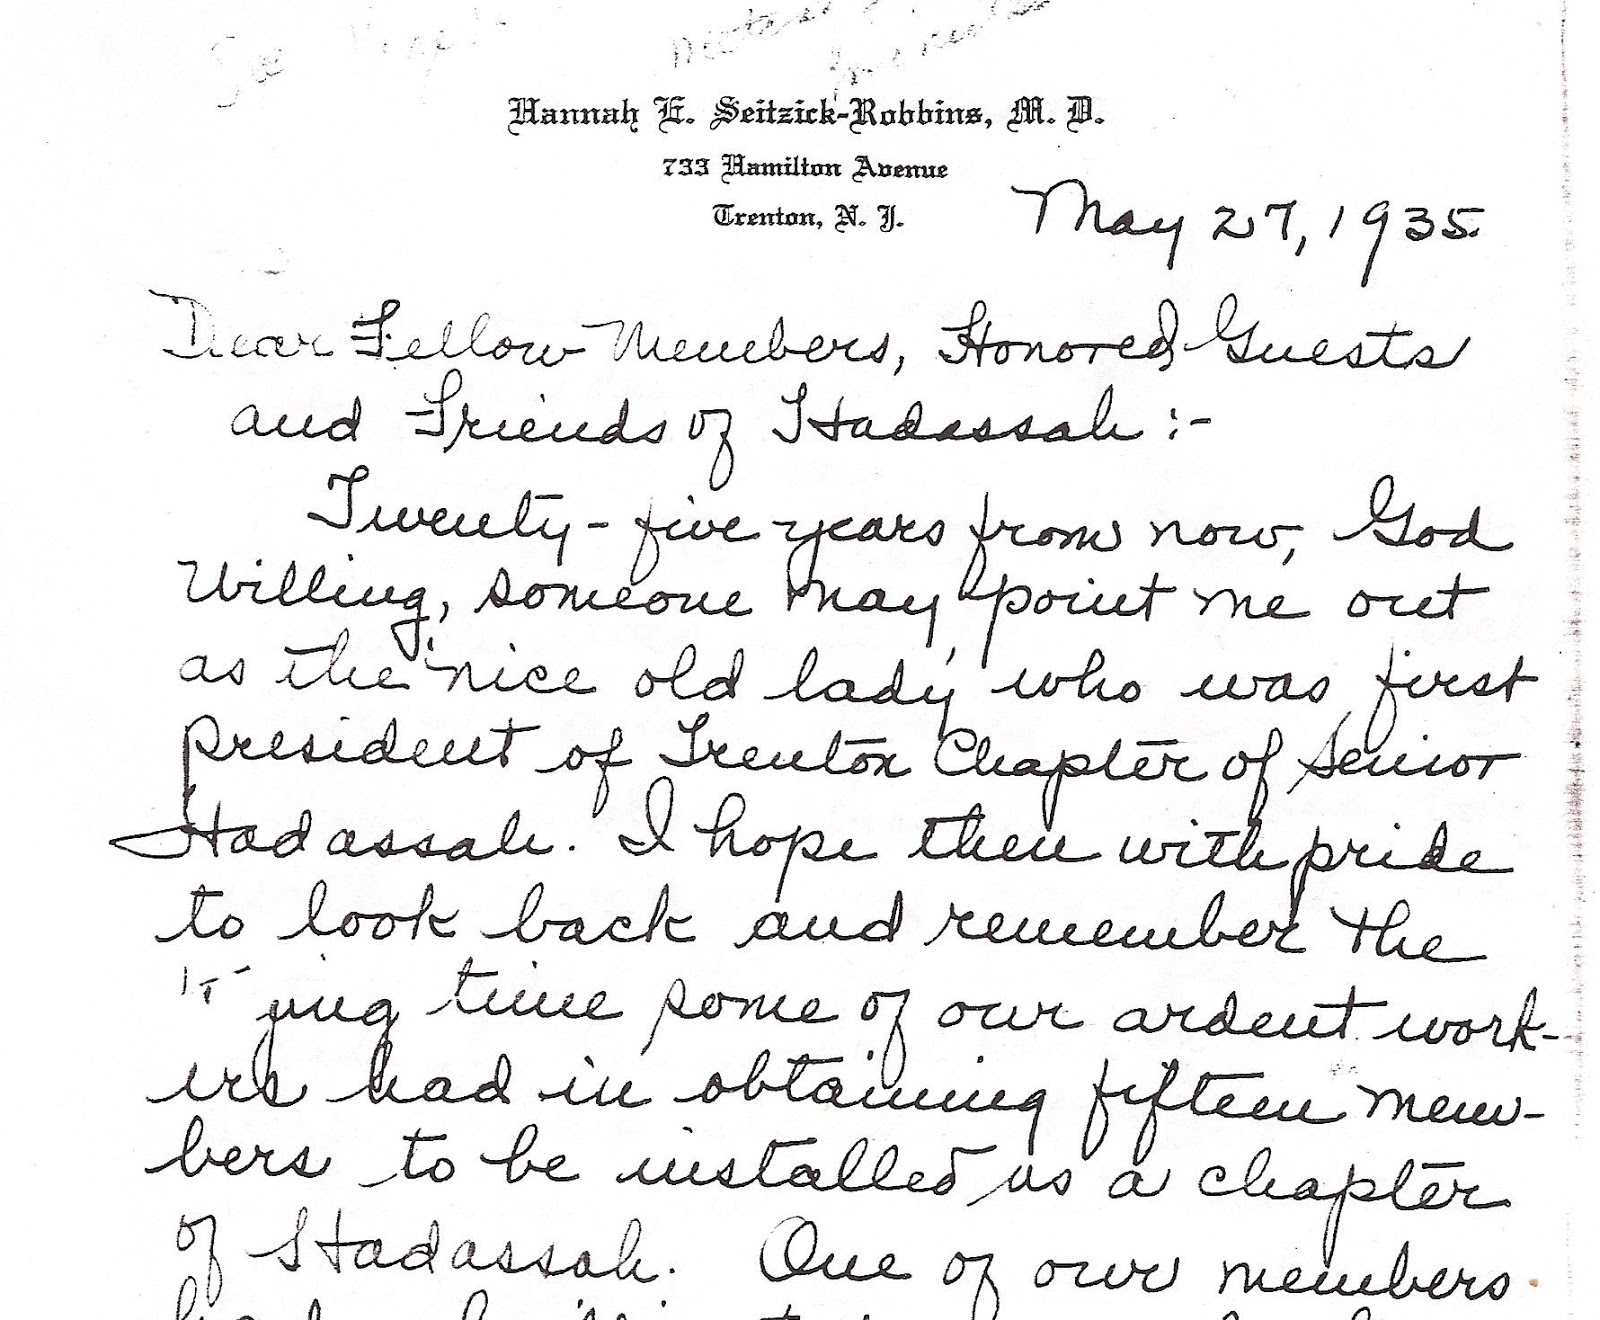 Hannah E. Seitzick-Robbins, M. D.
733 Hamilton Avenue
Trenton, N. J.
May 27, 1935.
Dear Fellow Members, Honored Guests
and Friends of Hadassah :-
Twenty-five years from now, God
Willing, someone may point me out
as the 'nice old lady' who was first
president of Trenton Chapter of Senior
Hadassah. I hope then with pride
to look back and remember the
time some of our ardent work-
ers had in obtaining fifteen mem-
bers to be installed as a chapter
of Hadassah. One of our members